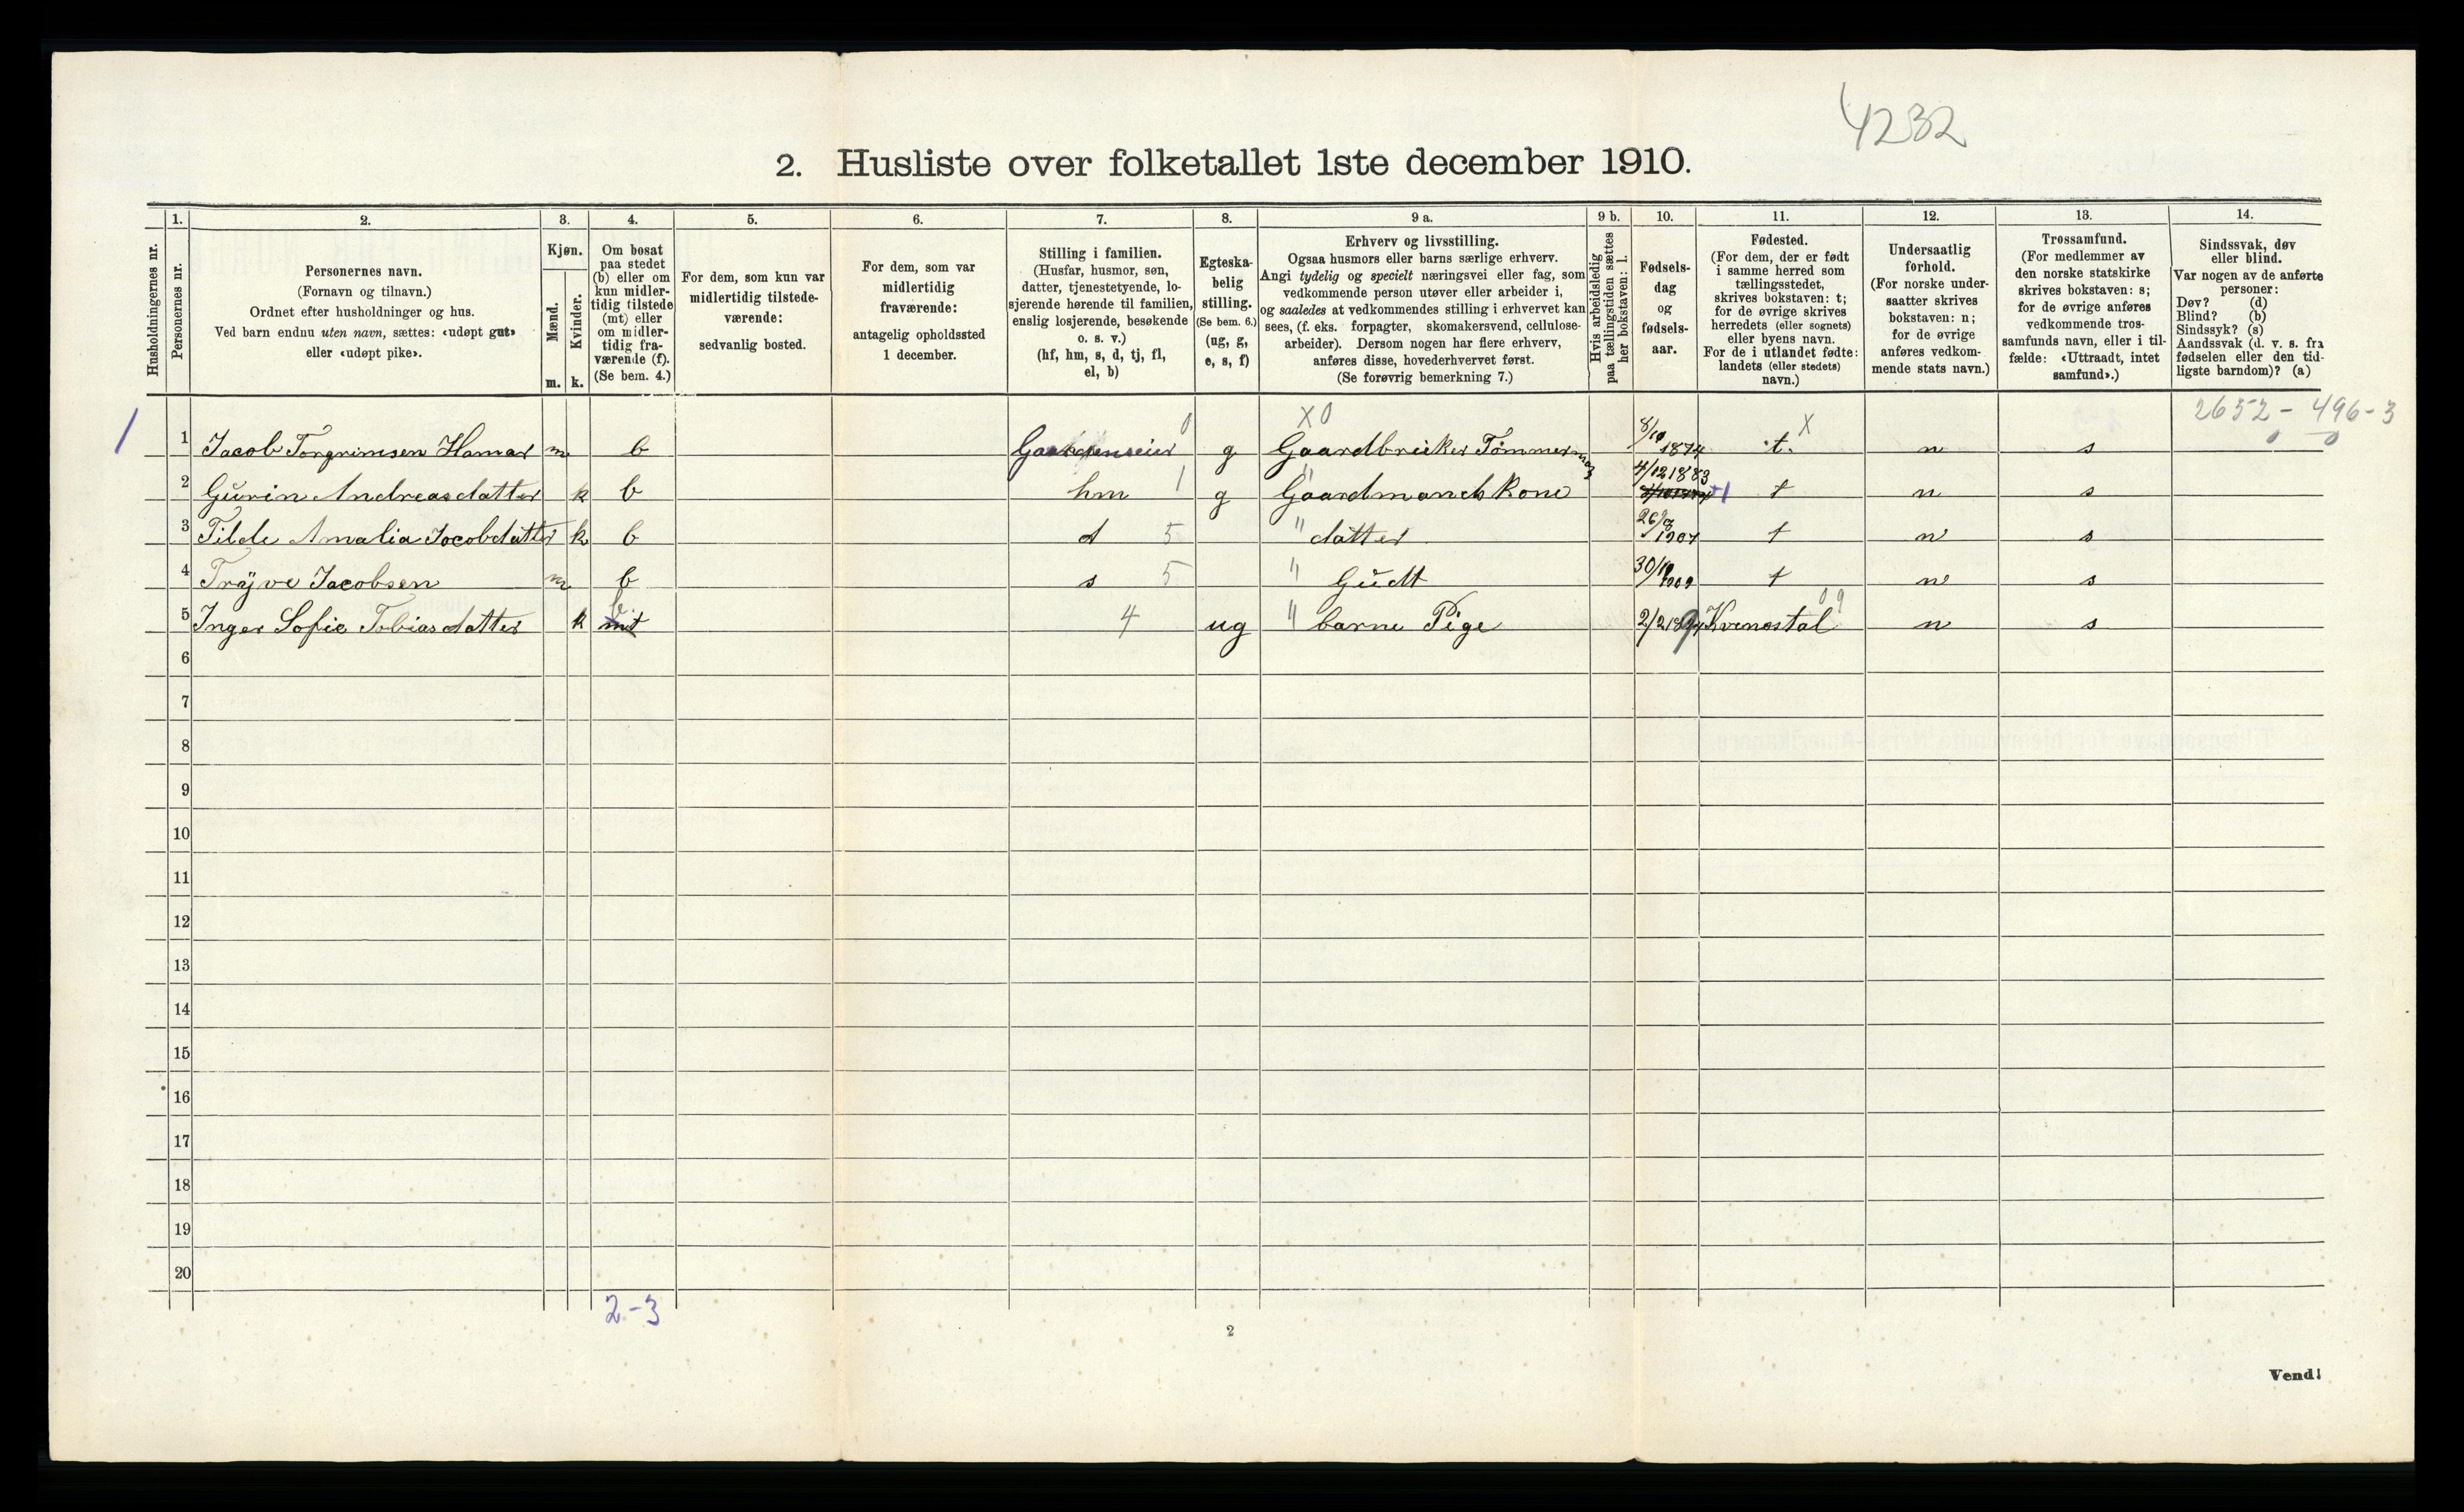 4232
2. Husliste over folketallet 1ste december 1910.
Husholdningernes nr.
1.
Personernes nr.
2.
Personernes navn.
(Fornavn og tilnavn.)
Ordnet efter husholdninger og hus.
Ved barn endnu uten navn, sættes: «udøpt gut»
eller «udøpt pike».
3.
Kjøn.
Mænd.
Kvinder.
m.
k.
4.
Om bosat
paa stedet
(b) eller om
kun midler-
tidig tilstede
(mt) eller
om midler-
tidig fra-
værende (f).
(Se bem. 4.)
5.
For dem, som kun var
midlertidig tilstede-
værende:
sedvanlig bosted.
6.
For dem, som var
midlertidig
fraværende:
antagelig opholdssted
1 december.
7.
Stilling i familien.
(Husfar, husmor, søn,
datter, tjenestetyende, lo-
sjerende hørende til familien,
enslig losjerende, besøkende
o. s. v.)
(hf, hm, s, d, tj, fl,
el, b)
8.
Egteska-
belig
stilling.
(Se bem. 6.)
(ug, g,
e, s, f)
9 a.
Erhverv og livsstilling.
Ogsaa husmors eller barns særlige erhverv.
Angi tydelig og specielt næringsvei eller fag, som
vedkommende person utøver eller arbeider i,
og saaledes at vedkommendes stilling i erhvervet kan
sees, (f. eks. forpagter, skomakersvend, cellulose-
arbeider). Dersom nogen har flere erhverv,
anføres disse, hovederhvervet først.
(Se forøvrig bemerkning 7.)
9 b.
Hvis arbeidsledig
paa tællingstiden sættes
her bokstaven: l.
10.
Fødsels-
dag
og
fødsels-
aar.
11.
Fødested.
(For dem, der er født
i samme herred som
tællingsstedet,
skrives bokstaven: t;
for de øvrige skrives
herredets (eller sognets)
eller byens navn.
For de i utlandet fødte:
landets (eller stedets)
navn.)
12.
Undersaatlig
forhold.
(For norske under-
saatter skrives
bokstaven: n;
for de øvrige
anføres vedkom-
mende stats navn.)
13.
Trossamfund.
(For medlemmer av
den norske statskirke
skrives bokstaven: s;
for de øvrige anføres
vedkommende tros-
samfunds navn, eller i til-
fælde: «Uttraadt, intet
samfund».)
14.
Sindssvak, døv
eller blind.
Var nogen av de anførte
personer:
Døv? (d)
Blind? (b)
Sindssyk? (s)
Aandssvak (d. v. s. fra
fødselen eller den tid-
ligste barndom)? (a)
2652 - 496-3
0 0
1 1 Jacob Torgrimsen Hamar m b 0 g X0 Gaardbruker Tømmerman 8/10 1874 t. X n s
2 Gurin Andreasdatter k b hm 1 g Gaardmands Kone 4/12 1883 +1 t n s
3 Tilde Amalia Jocobdatter k b d 5 " datter 26/8 1907 t n s
4 Tryve Jacobsen m b s 5 " Gudt 30/10 1909 t n s
5 Inger Sofie Tobiasdatter k b mt 4 ug " barne Pige 2/2 1894 Kvinestal 09 n s
6
7
8
9
10
11
12
13
14
15
16
17
18
19
20
2-3
2
Vend!